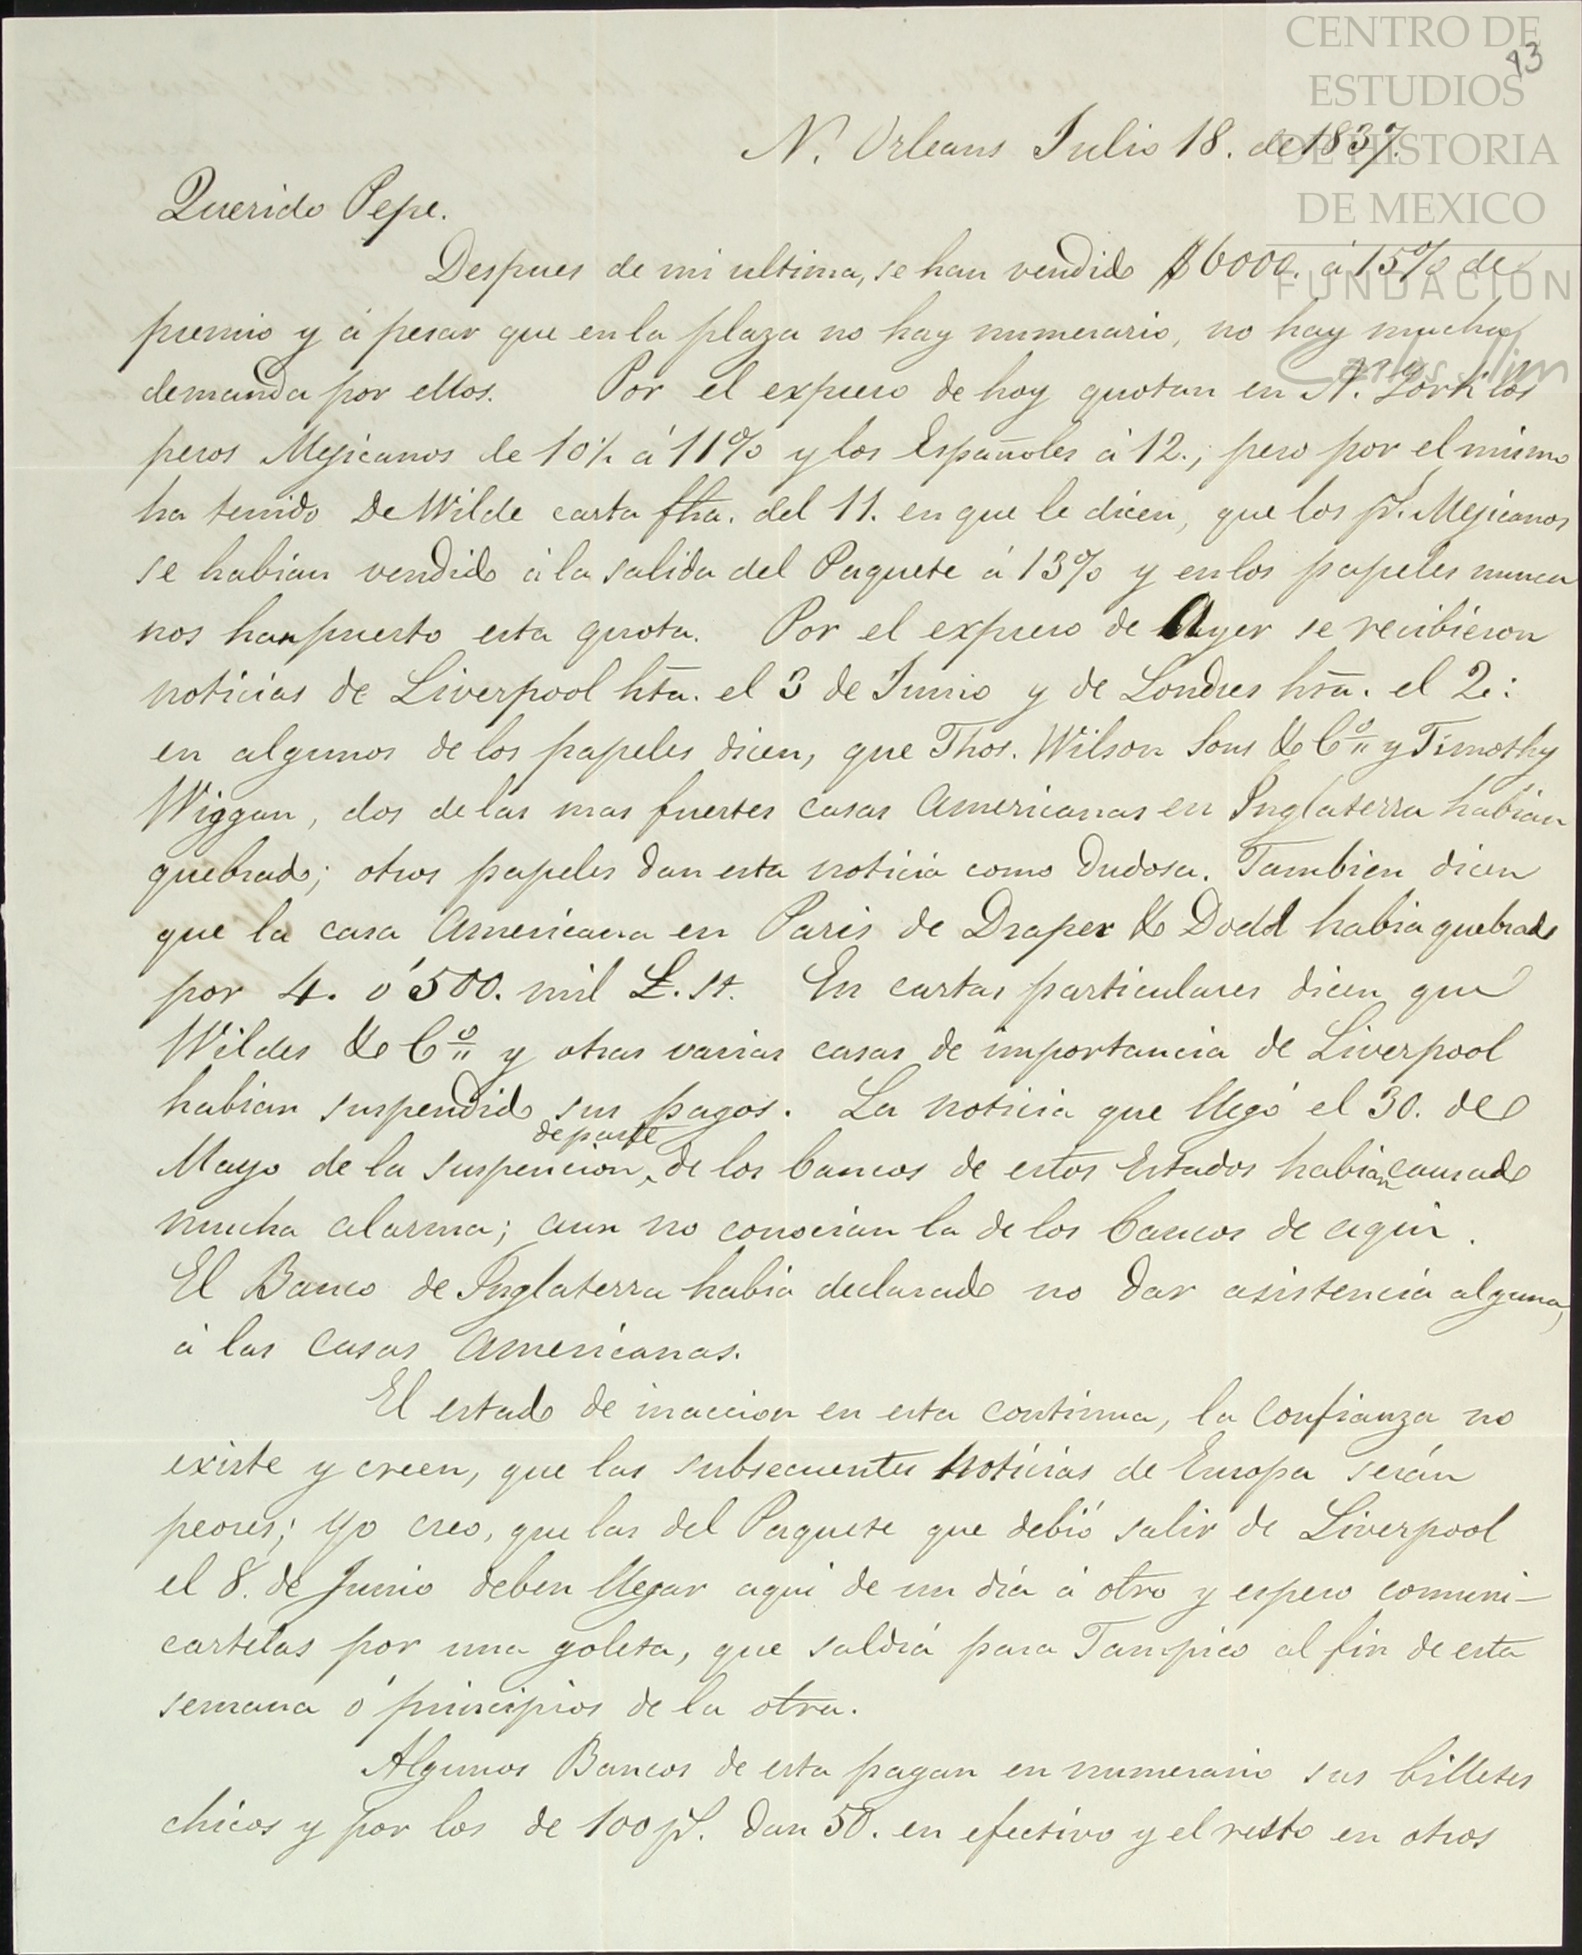 CENTRO DE
ESTUDIOS
DE HISTORIA
DE MEXICO
FUNDACIÓN
Carlos Slim
93
N. Orleans Julio 18. de 1837.
Querido Pepe.
Despues de mi ultima, se han vendido $6000. á 15% de
premio y á pesar que en la plaza no hay numerario, no hay mucha
demanda por ellos. Por el expreso de hoy quotan en N. York los
pesos Mejicanos de 10½ á 11% y los Españoles á 12.; pero por el mismo
ha tenido De Wilde carta fha. del 11. en que le dicen, que los ps. Mejicanos
se habian vendido á la salida del Paquete á 13% y en los papeles nunca
nos han puesto esta quota. Por el expreso de Ayer se recibieron
noticias de Liverpool hta. el 3 de Junio y de Londres hta. el 2.:
en algunos de los papeles dicen, que Thos. Wilson Sons & Co. y Timothy
Wiggan, dos de las mas fuertes casas Americanas en Inglaterra habian
quebrado; otros papeles dan esta noticia como Dudosa. Tambien dicen
que la casa Americana en Paris de Draper & Dodd habia quebrado
por 4. ó 500. mil £. St. En cartas particulares dicen que
Wildes & Co. y otras varias casas de importancia de Liverpool
habian suspendido sus pagos. La noticia que llegó el 30. de
Mayo de la suspencion de parte de los bancos de estos Estados habian causado
mucha alarma; aun no conocian la de los bancos de aqui.
El Banco de Inglaterra habia declarado no dar asistencia alguna,
á las casas Americanas.
El estado de inaccion en esta continua, la confianza no
existe y creen, que las subsecuentes noticias de Europa serán
peores; yo creo, que las del Paquete que debió salir de Liverpool
el 8. de Junio deben llegar aqui de un dia á otro y espero comuni-
cartelas por una goleta, que saldrá para Tampico al fin de esta
semana ó principios de la otra.
Algunos Bancos de esta pagan en numerario sus billetes
chicos y por los de 100 ps. dan 50. en efectivo y el resto en otros